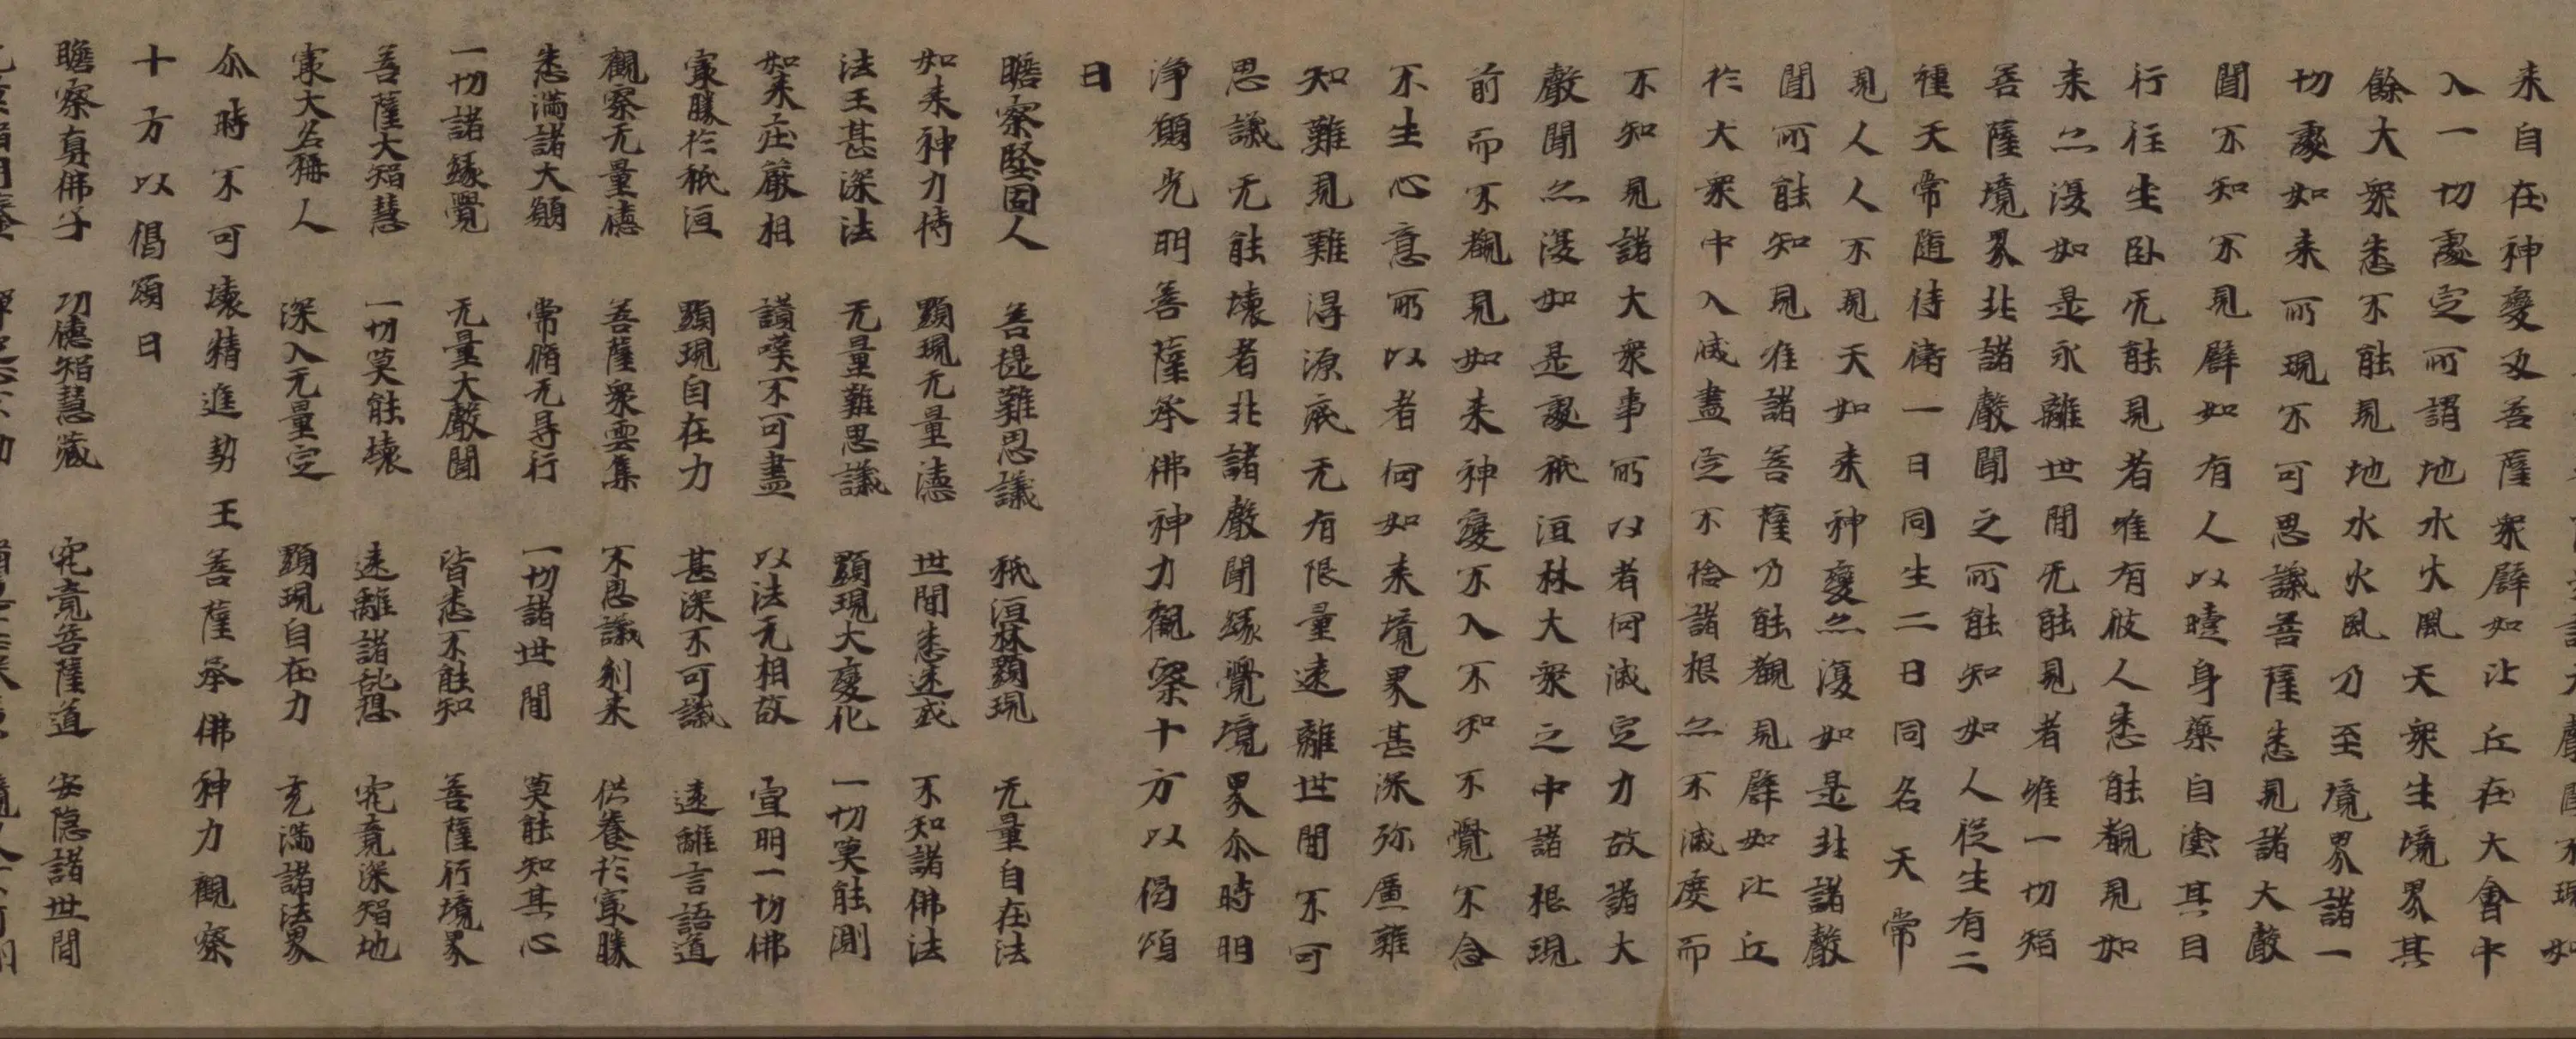 来自在神變及菩薩衆辟如比丘在大會中
入一切處定所謂地水火風天衆生境界其
餘大衆悉不能見地水火風乃至境界諸一
切處如来所現不可思議菩薩悉見諸大聲
聞不知不見辟如有人以曀身藥自塗其目
行往坐卧无能見者唯有彼人悉能覩見如
来亦復如是永離世間无能見者唯一切智
菩薩境界非諸聲聞之所能知如人從生有二
種天常随侍衛一曰同生二曰同名天常
見人人不見天如来神變亦復如是非諸聲
聞所能知見唯諸菩薩乃能覩見辟如比丘
於大衆中入滅盡定不捨諸根亦不滅度而
不知見諸大衆事所以者何滅定力故諸大
聲聞亦復如是處祇洹林大衆之中諸根現
前而不覩見如来神變不入不知不覺不念
不生心意所以者何如来境界甚深弥廣難
知難見難得源底无有限量遠離世間不可
思議无能壞者非諸聲聞緣覺境界尒時明
淨願光明菩薩承佛神力觀察十方以偈頌
曰
瞻察堅固人 菩提難思議 祇洹林顯現 无量自在法
如来神力持 顯現无量德 世間悉迷惑 不知諸佛法
法王甚深法 无量難思議 顯現大變化 一切莫能測
如来庄嚴相 讃嘆不可盡 以法无相故 宣明一切佛
㝡勝於祇洹 顯現自在力 甚深不可議 遠離言語道
觀察无量德 菩薩衆雲集 不思議刹来 供養於㝡勝
悉滿諸大願 常脩无㝵行 一切諸世間 莫能知其心
一切諸緣覺 无量大聲聞 皆悉不能知 菩薩行境界
菩薩大智慧 一切莫能壞 遠離諸乱想 究竟深智地
㝡大名稱人 深入无量定 顯現自在力 充滿諸法界
尒時不可壞精進勢王菩薩承佛神力觀察
十方以偈頌曰
瞻察真佛子 功德智慧藏 究竟菩薩道 安隱諸世間